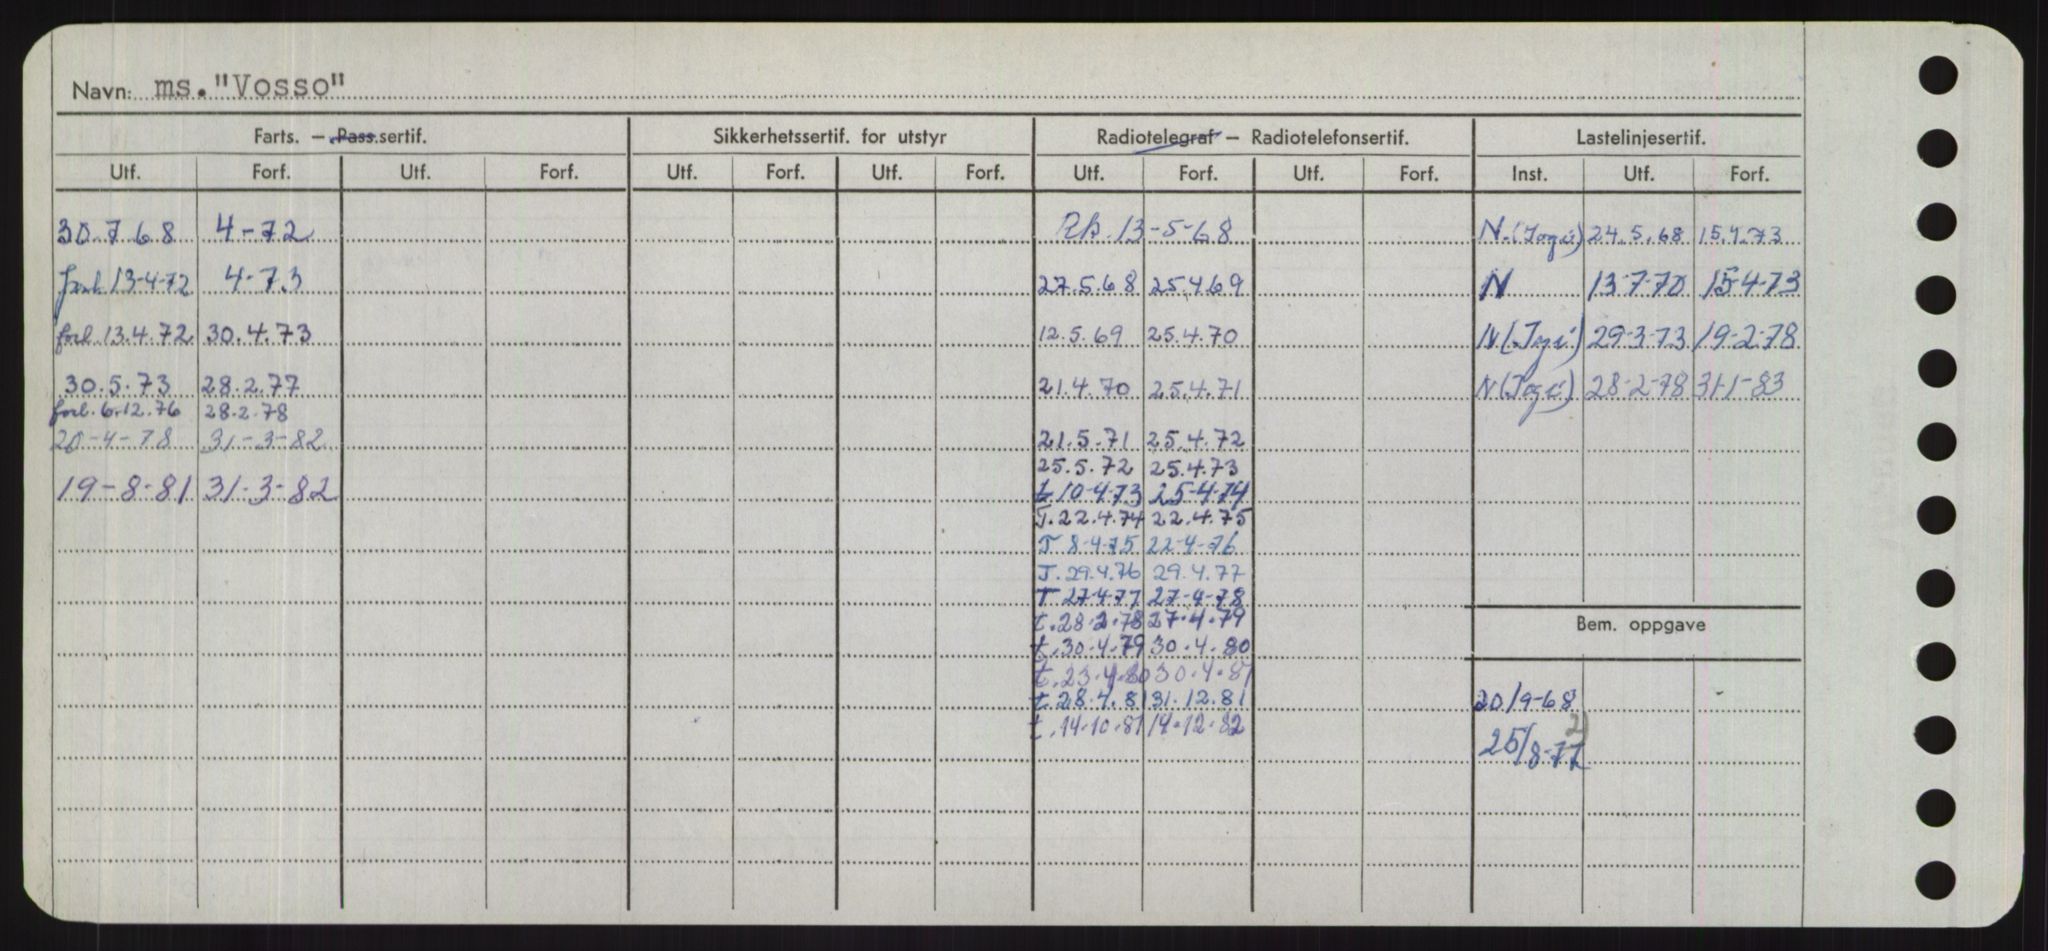 Navn: ms."Vosso"
Farts. — Pass.sertif. Sikkerhetssertif. for utstyr Radiotelegraf — Radiotelefonsertif. Lastelinjesertif.
Utf. Forf. Utf. Forf. Utf. Forf. Utf. Forf. Utf. Forf. Utf. Forf. Inst. Utf. Forf.
30.7 68 4-72 13-5-68 N. 24.5.68 15.4.73
13-4-72 4-73 27.5.68 25.4.69 N 13-7-70 15-4-73
forl. 13.4.72 30.4.73 12.5.69 25.4.70 N 29-3-73 19-2-78
30.5.73 28.2.77 21.4.70 25.4.71 N 28-2-78 31-1-83
forl. 6.12.76 28.2.78
20-4-78 31-3-82 21.5.71 25.4.72
25.5.72 25.4.73
19-8-81 31-3-82 t 10-4-73 25-4-74
T. 22.4.74 22.4.75
T 8-4-75 22-4-76
T. 29.4.76 29.4.77
T 27-4-77 27-4-78
t. 28.2.78 27.4.79
Bem. oppgave
t. 30.4.79 30.4.80
t. 23.4.80 30.4.81
t. 28.4.81 31.12.81 20/9-68
t. 14.10.81 14.12.82
25/8-77 2)